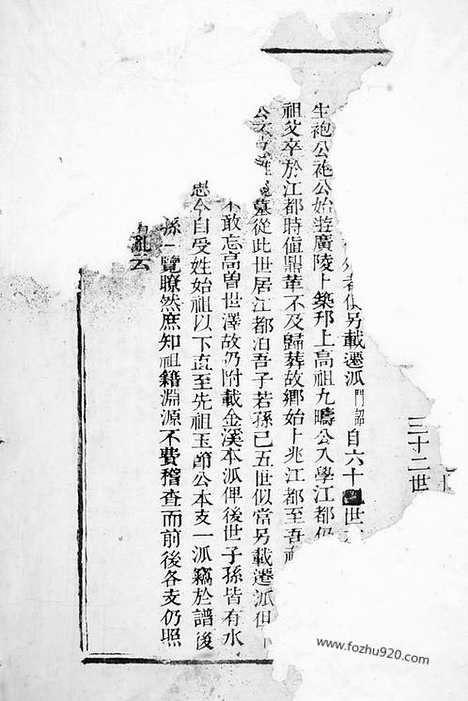 三十二世
者俱另載遷派門 自六十 世
生袍公袍公始遊廣陵卜築邗上高祖九疇公入學江都仍
祖父卒於江都時值鼎革不及歸葬故鄉始卜兆江都至吾
公 墓從此世居江都洎吾子若孫已五世似當另載遷派但
不敢忘高曽世澤故仍附載金溪本派俾後世子孫皆有水
思今自受姓始祖以下直至先祖玉節公本支一派竊於譜後
孫一覽瞭然庶知祖籍淵源不費稽查而前後各支仍照
亂云
www.fozhu920.com